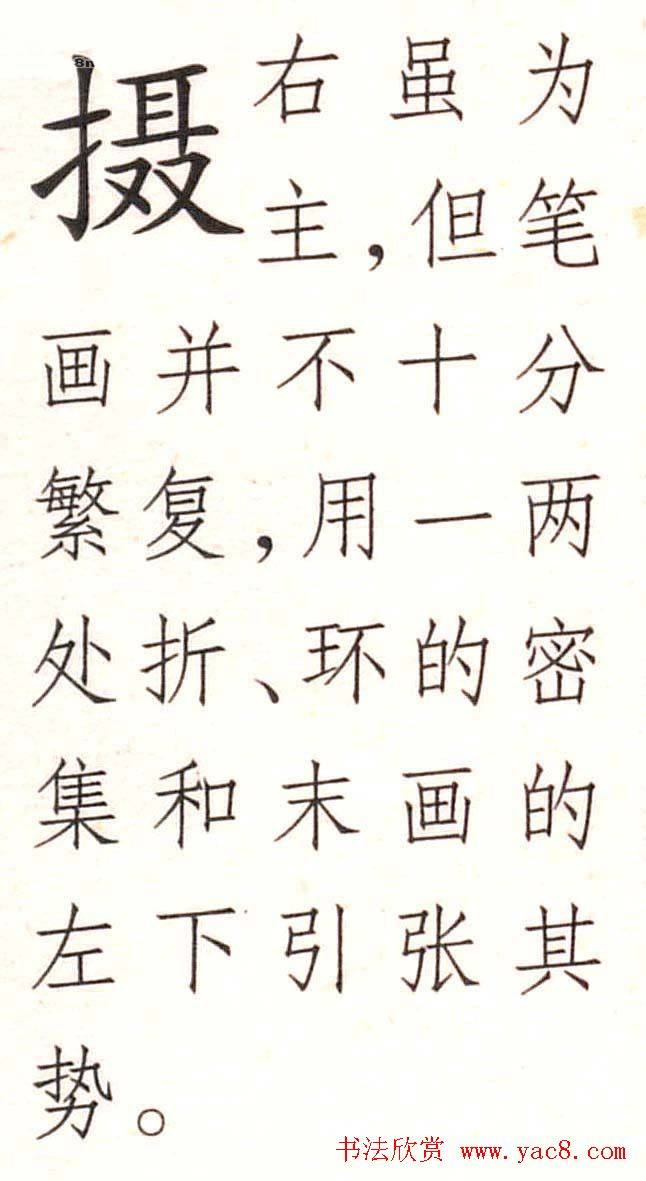 摄
右虽为
主，但笔
画并不十分
繁复，用一两
处折、环的密
集和末画的
左下引张其
势。
书法欣赏 www.yac8.com